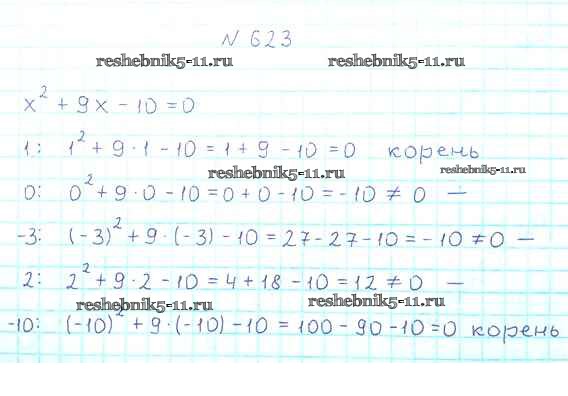 N 623
reshebnik5-11.ru reshebnik5-11.ru
x² + 9x - 10 = 0
1: 1² + 9 · 1 - 10 = 1 + 9 - 10 = 0 корень
reshebnik5-11.ru reshebnik5-11.ru
0: 0² + 9 · 0 - 10 = 0 + 0 - 10 = -10 ≠ 0 —
-3: (-3)² + 9 · (-3) - 10 = 27 - 27 - 10 = -10 ≠ 0 —
2: 2² + 9 · 2 - 10 = 4 + 18 - 10 = 12 ≠ 0 —
reshebnik5-11.ru reshebnik5-11.ru
-10: (-10)² + 9 · (-10) - 10 = 100 - 90 - 10 = 0 корень